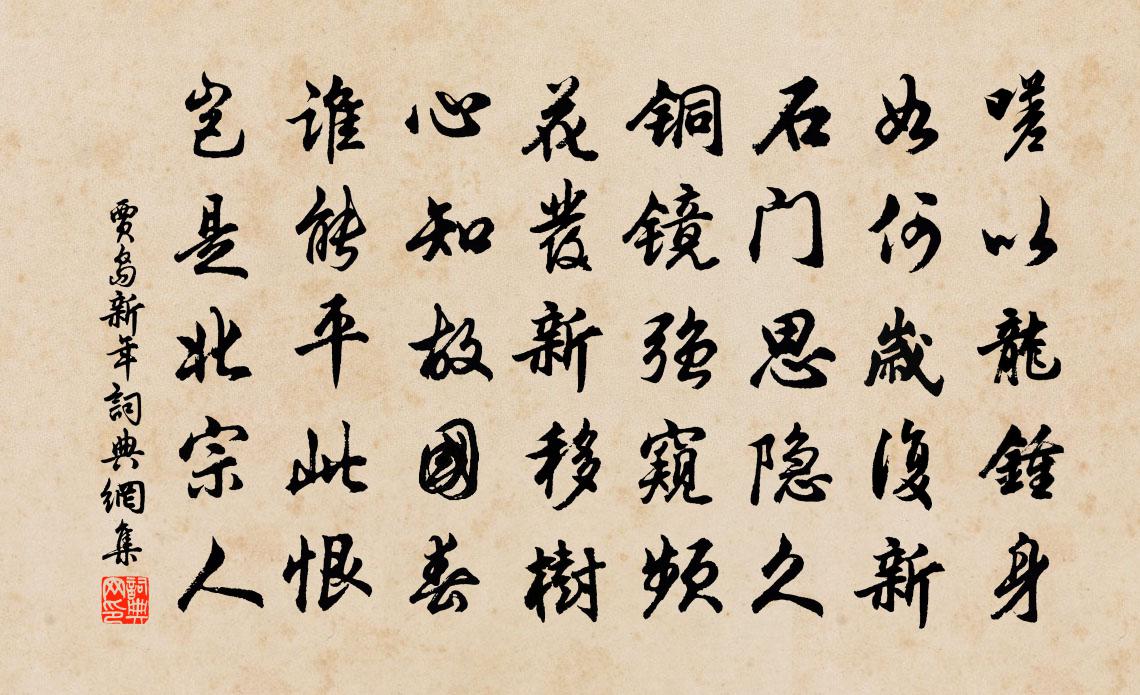 嗟以龍鍾身
如何歲復新
石门思隐久
铜镜强窺頻
花發新移樹
心知故國春
谁能平此恨
岂是北宗人
賈島新年詞典網集
詞典网印